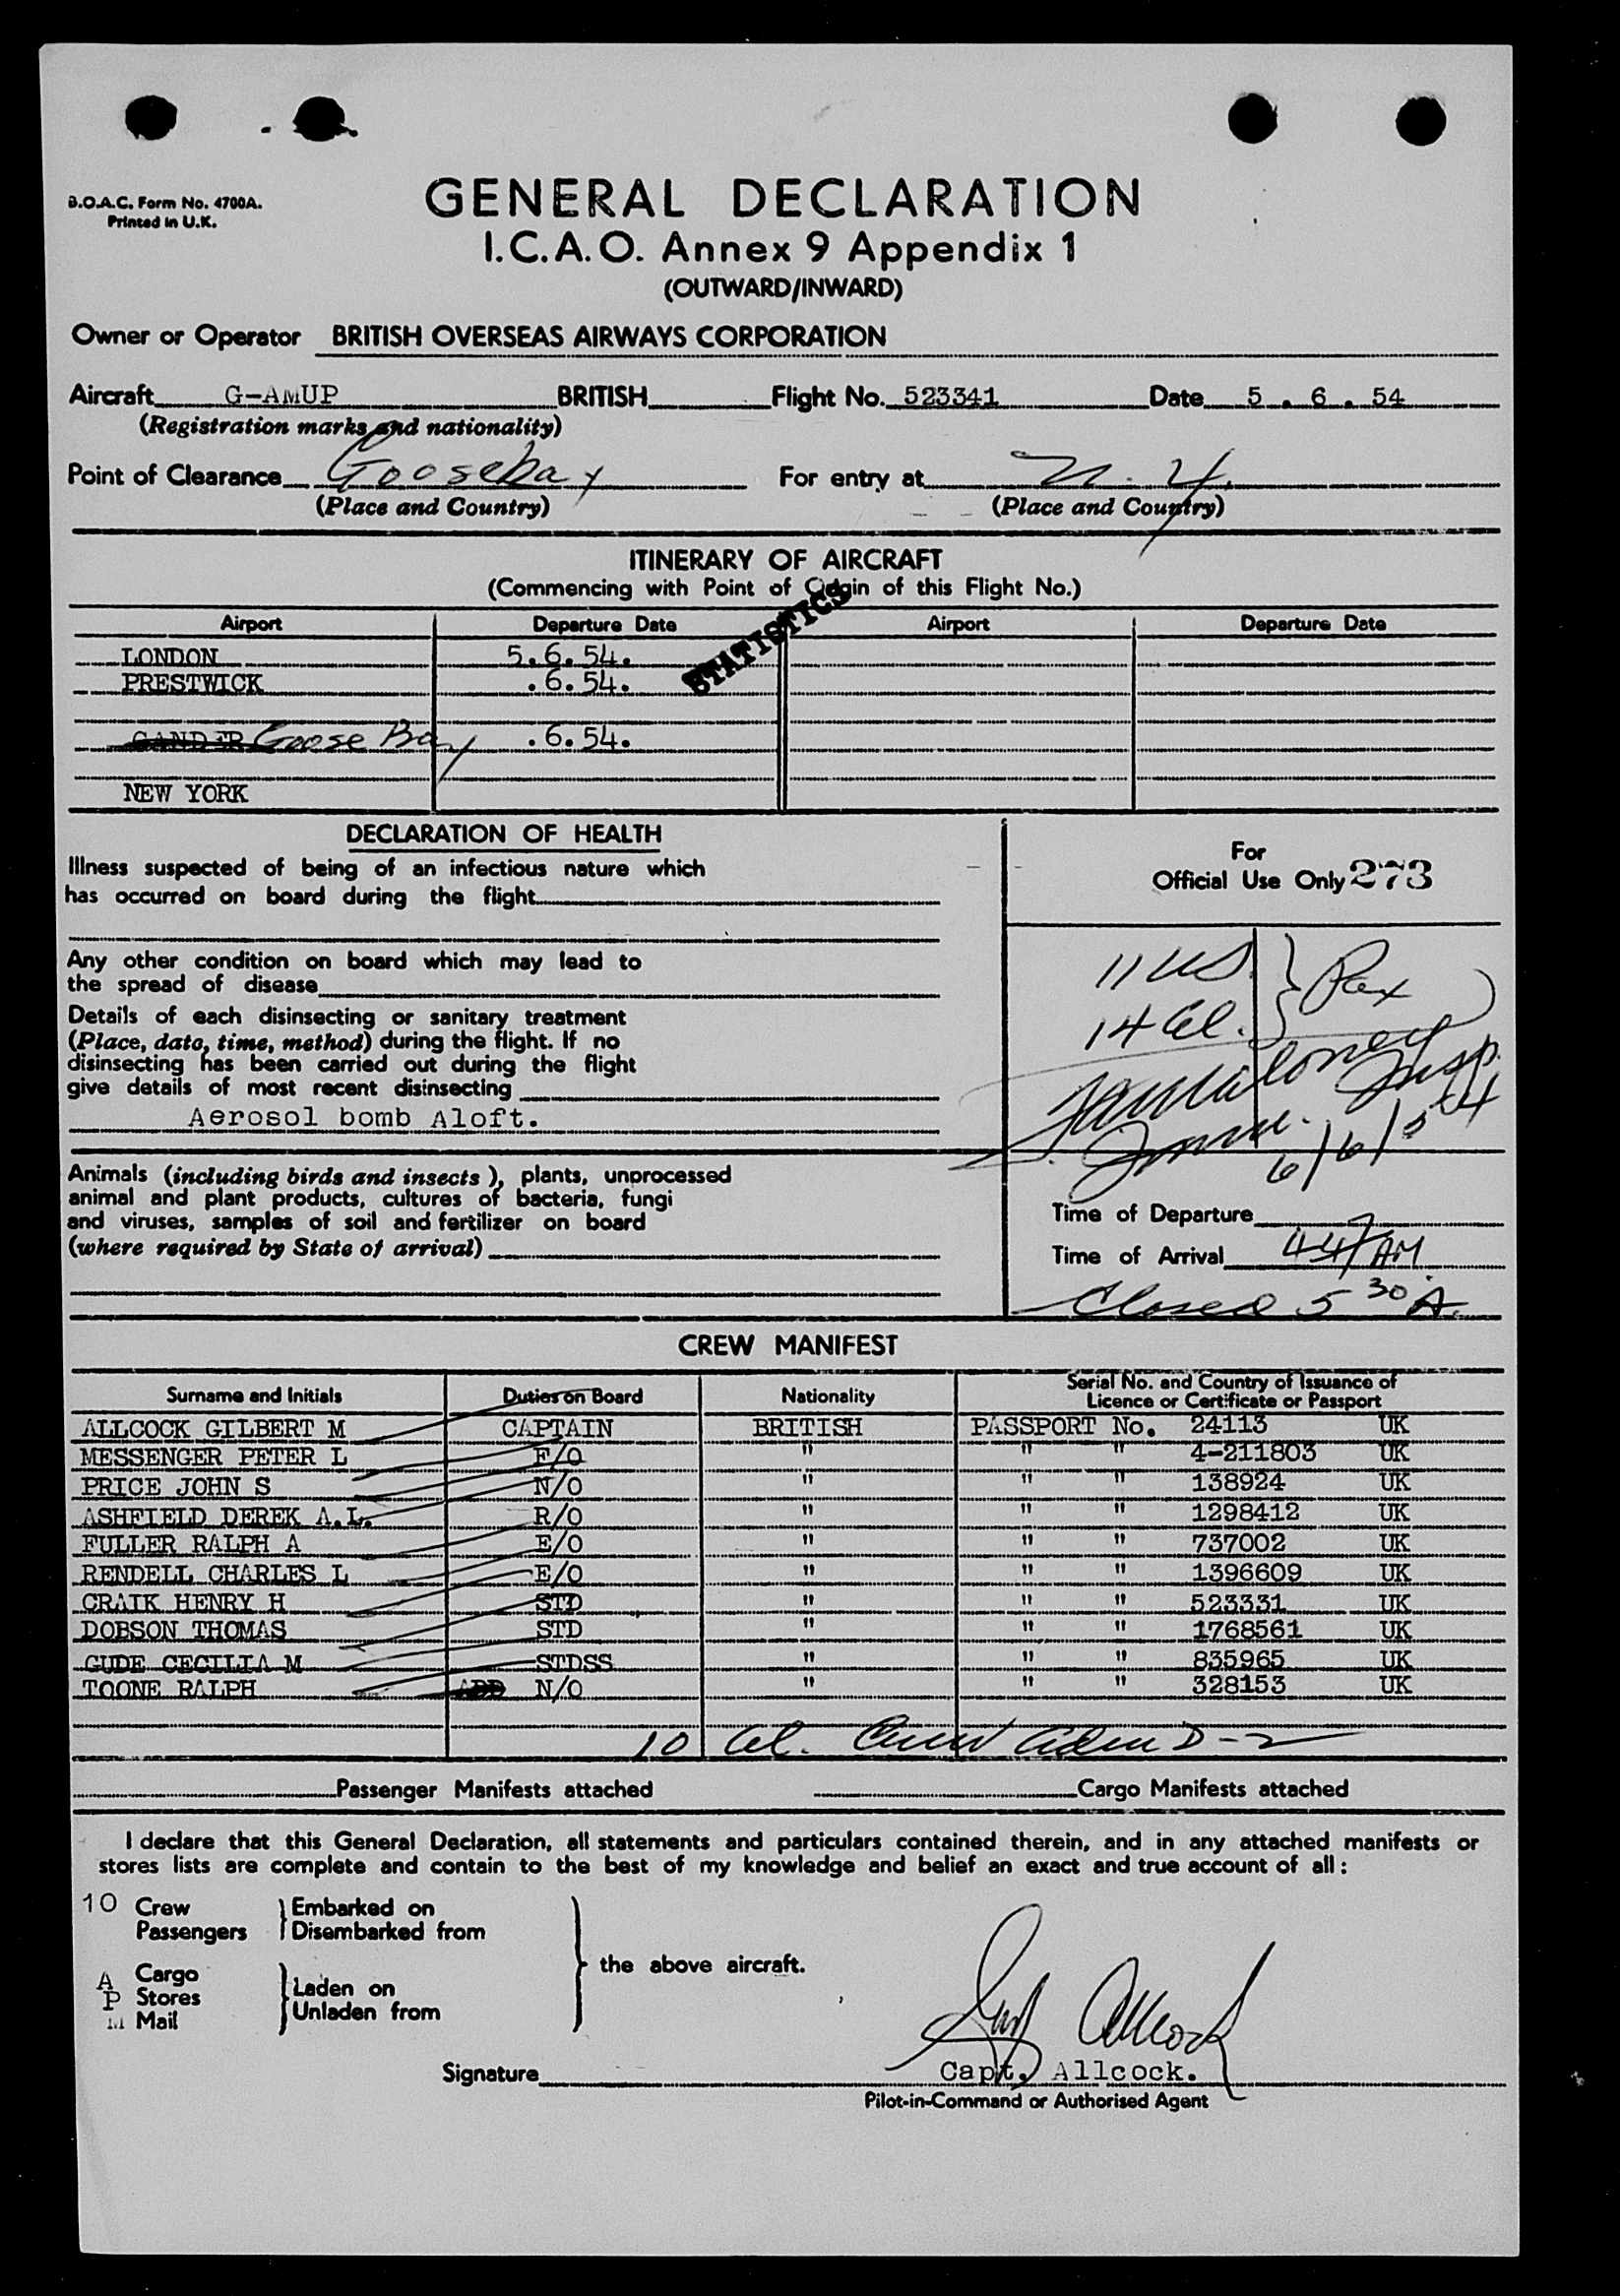 B.O.A.C. Form No. 4700A.
Printed in U.K.
GENERAL DECLARATION
I.C.A.O. Annex 9 Appendix 1
(OUTWARD/INWARD)
Owner or Operator BRITISH OVERSEAS AIRWAYS CORPORATION
Aircraft G-AMUP BRITISH Flight No. 523341 Date 5 . 6 . 54
(Registration marks and nationality)
Point of Clearance Goosebay For entry at N.Y.
(Place and Country) (Place and Country)
ITINERARY OF AIRCRAFT
(Commencing with Point of Origin of this Flight No.)
STATISTICS
Airport Departure Date Airport Departure Date
LONDON 5.6.54.
PRESTWICK .6.54.
GANDER Goose Bay .6.54.
NEW YORK
DECLARATION OF HEALTH
Illness suspected of being of an infectious nature which
has occurred on board during the flight
Any other condition on board which may lead to
the spread of disease
Details of each disinsecting or sanitary treatment
(Place, date, time, method) during the flight. If no
disinsecting has been carried out during the flight
give details of most recent disinsecting
Aerosol bomb Aloft.
Animals (including birds and insects), plants, unprocessed
animal and plant products, cultures of bacteria, fungi
and viruses, samples of soil and fertilizer on board
(where required by State of arrival)
For
Official Use Only 273
11 US } Pax
14 al.
Insp.
6/6/54
Time of Departure
Time of Arrival 447 AM
Closed 5 30 A.
CREW MANIFEST
Surname and Initials Duties on Board Nationality Serial No. and Country of Issuance of
Licence or Certificate or Passport
ALLCOCK GILBERT M CAPTAIN BRITISH PASSPORT No. 24113 UK
MESSENGER PETER L F/O " " " 4-211803 UK
PRICE JOHN S N/O " " " 138924 UK
ASHFIELD DEREK A.L. R/O " " " 1298412 UK
FULLER RALPH A E/O " " " 737002 UK
RENDELL CHARLES L E/O " " " 1396609 UK
CRAIK HENRY H STD " " " 523331 UK
DOBSON THOMAS STD " " " 1768561 UK
GUDE CECILIA M STDSS " " " 835965 UK
TOONE RALPH ADD N/O " " " 328153 UK
10 al. Crew adm D-2
Passenger Manifests attached Cargo Manifests attached
I declare that this General Declaration, all statements and particulars contained therein, and in any attached manifests or
stores lists are complete and contain to the best of my knowledge and belief an exact and true account of all:
10 Crew } Embarked on
Passengers } Disembarked from
the above aircraft.
A Cargo } Laden on
P Stores
M Mail } Unladen from
Allcock
Signature Capt. Allcock.
Pilot-in-Command or Authorised Agent